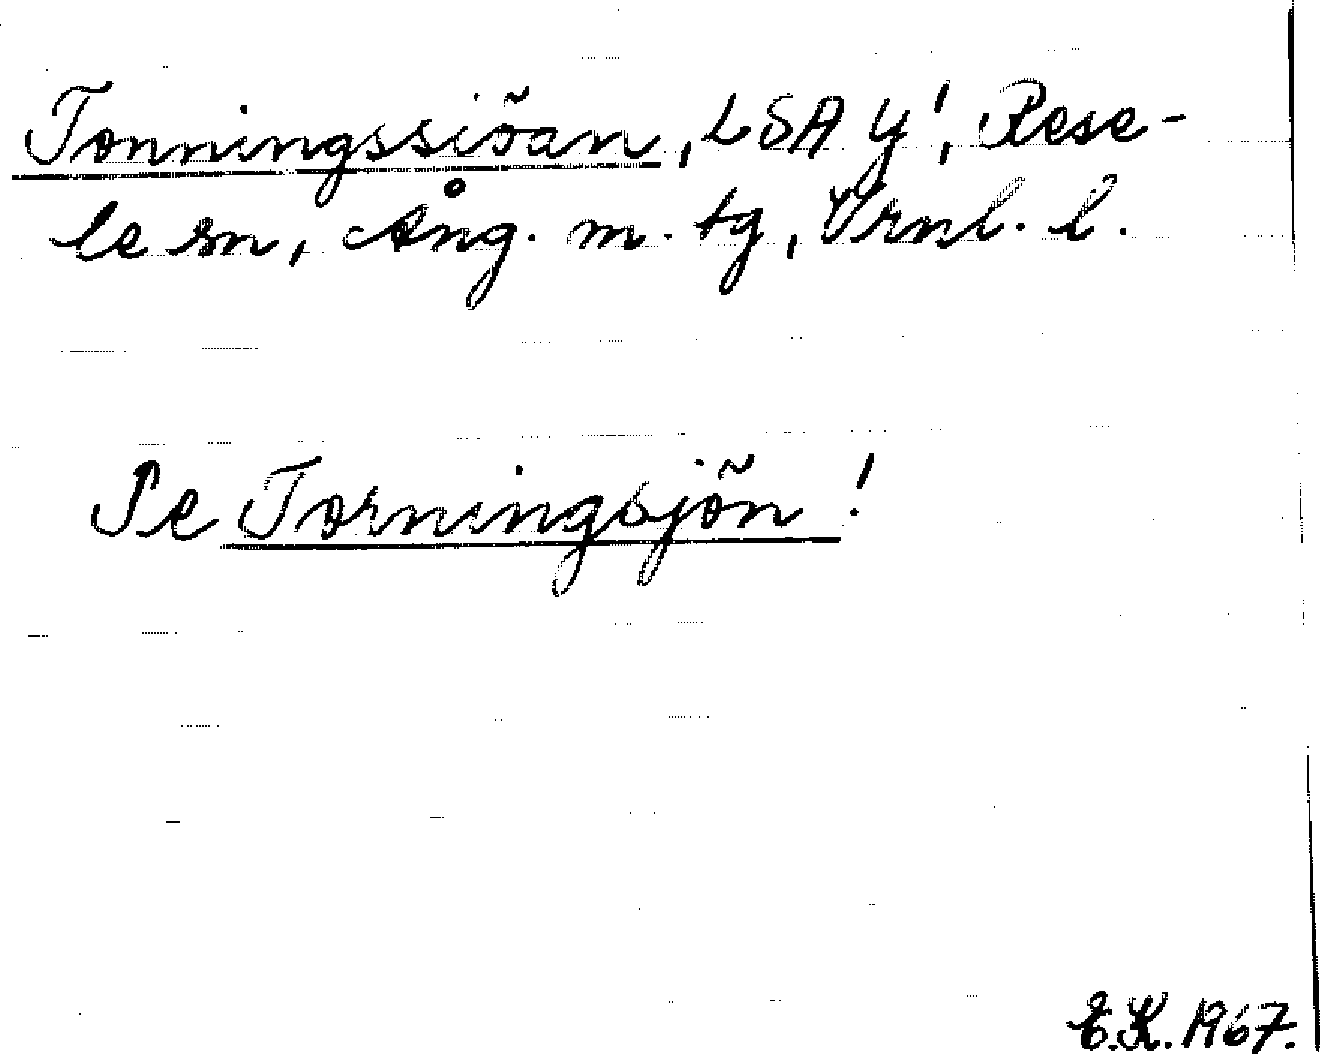 Tonningssiöan, LSA Y!, Rese-
le sn, Ång. m. tg, Vrnl. l.
Se Torningsjön!
E.K. 1967.